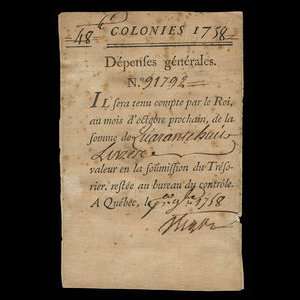 COLONIES 1758
48
Dépenses générales.
N.º 91792
IL sera tenu compte par le Roi,
au mois d'octobre prochain, de la
somme de Quarante huit
Livres
valeur en la soumission du Tréso-
rier, restée au bureau du contrôle.
A Québec, le 1758